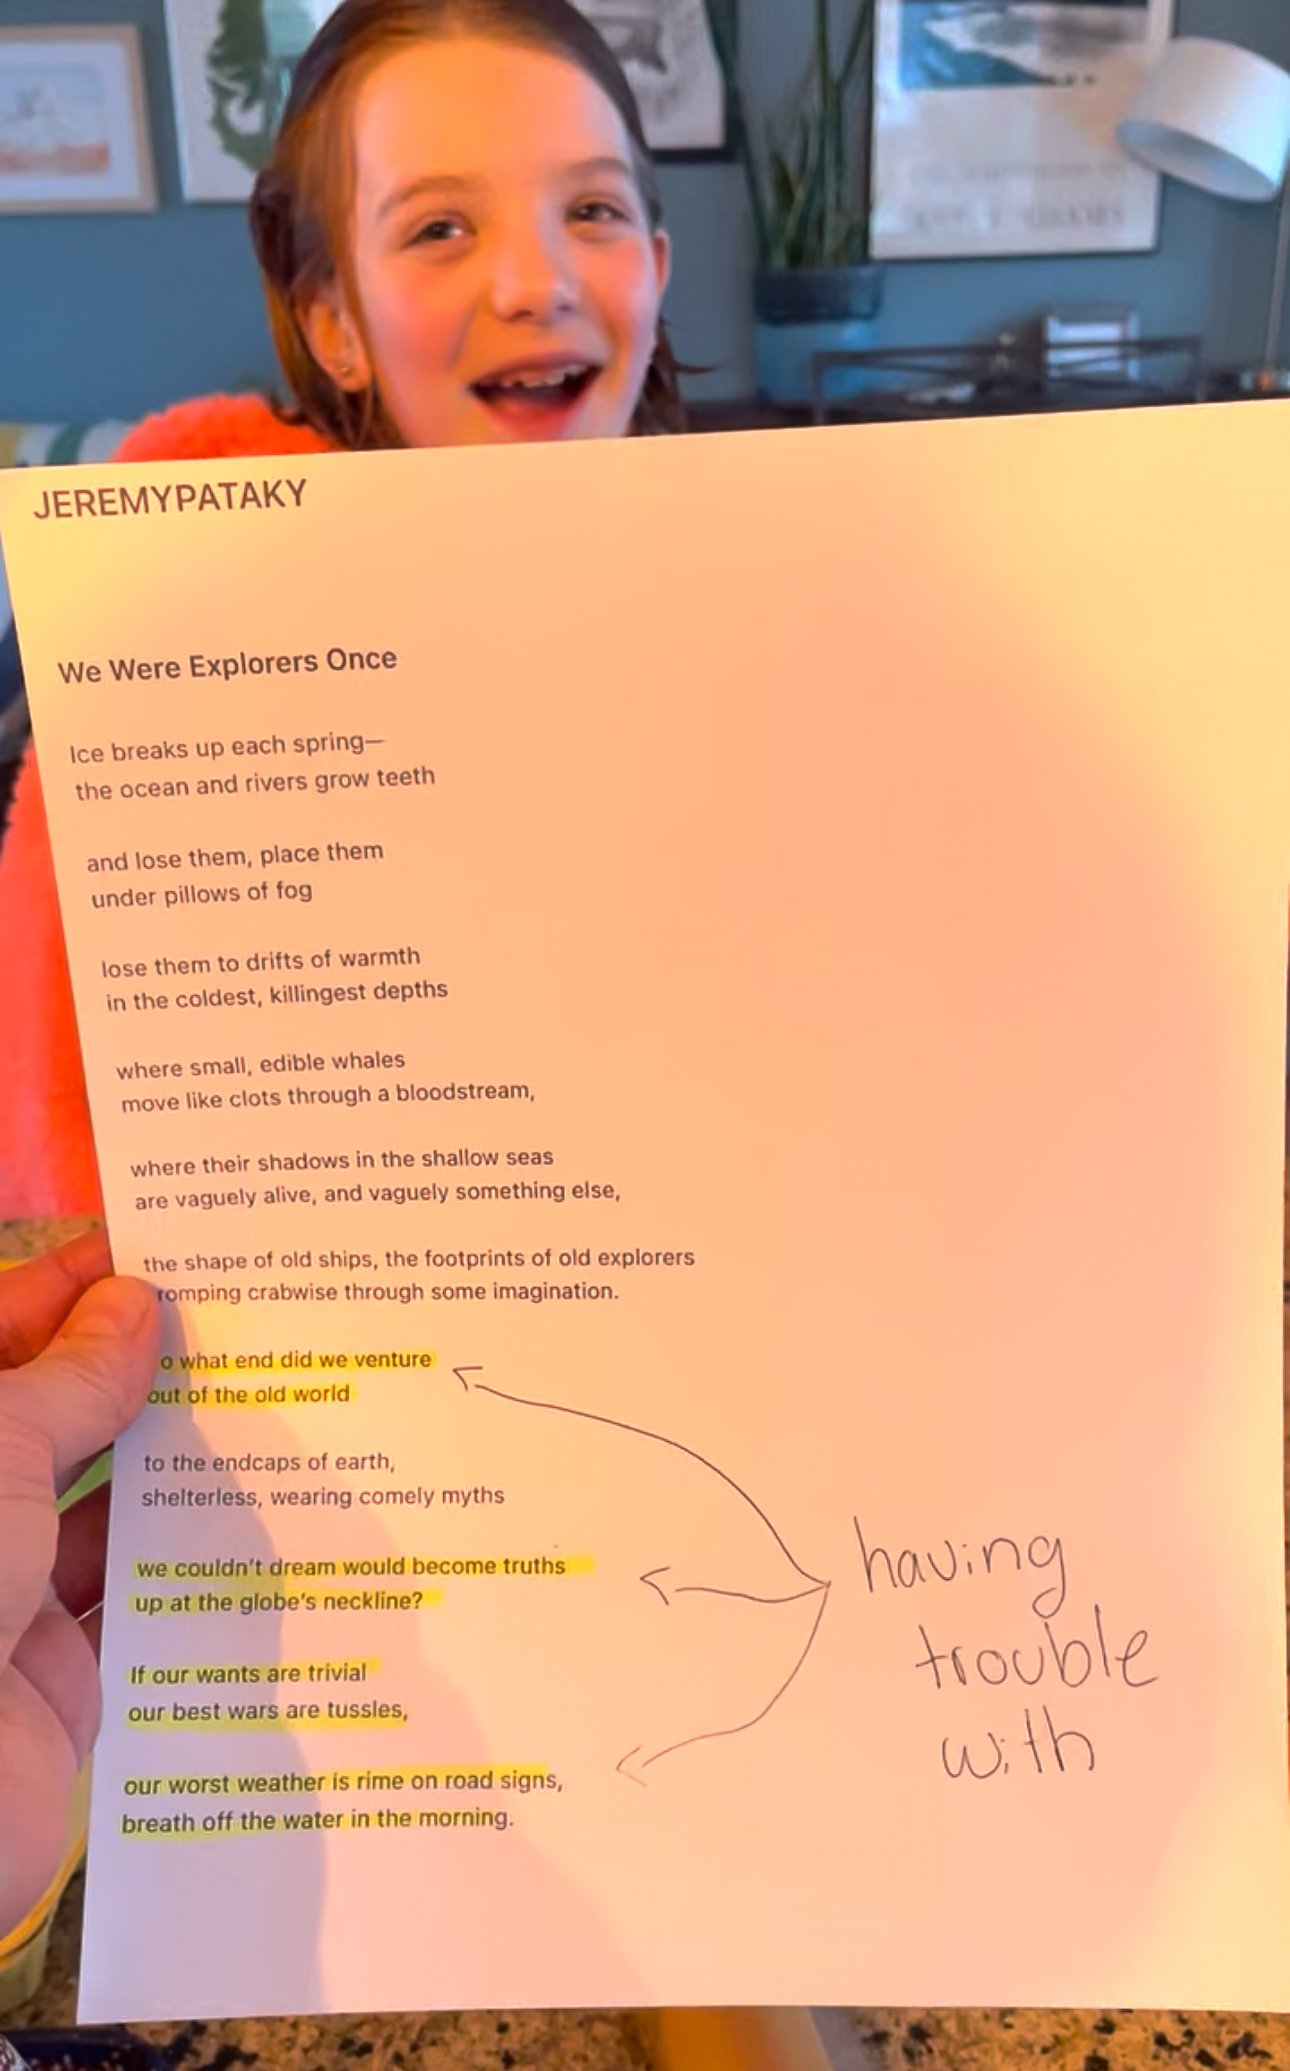 JEREMYPATAKY
We Were Explorers Once
Ice breaks up each spring—
the ocean and rivers grow teeth
and lose them, place them
under pillows of fog
lose them to drifts of warmth
in the coldest, killingest depths
where small, edible whales
move like clots through a bloodstream,
where their shadows in the shallow seas
are vaguely alive, and vaguely something else,
the shape of old ships, the footprints of old explorers
romping crabwise through some imagination.
o what end did we venture
out of the old world
to the endcaps of earth,
shelterless, wearing comely myths
we couldn't dream would become truths
up at the globe's neckline?
If our wants are trivial
our best wars are tussles,
our worst weather is rime on road signs,
breath off the water in the morning.
having
trouble
with